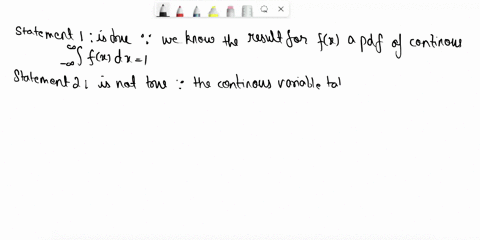 Statement 1: is true ∵ we know the result for f(x) a pdf of continous
∫_{-∞}^{∞} f(x) dx = 1
Statement 2: is not true ∵ the continous variable tal